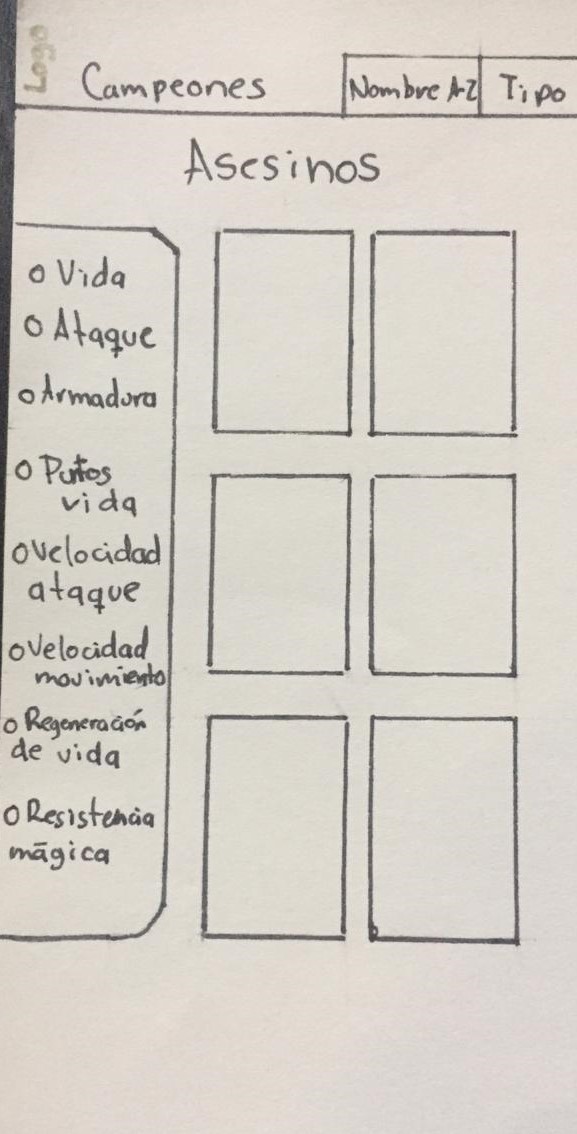 Logo
Campeones
Nombre A-Z
Tipo
Asesinos
o Vida
o Ataque
o Armadura
o Putos
vida
o Velocidad
ataque
o Velocidad
movimiento
o Regeneración
de vida
o Resistencia
mágica